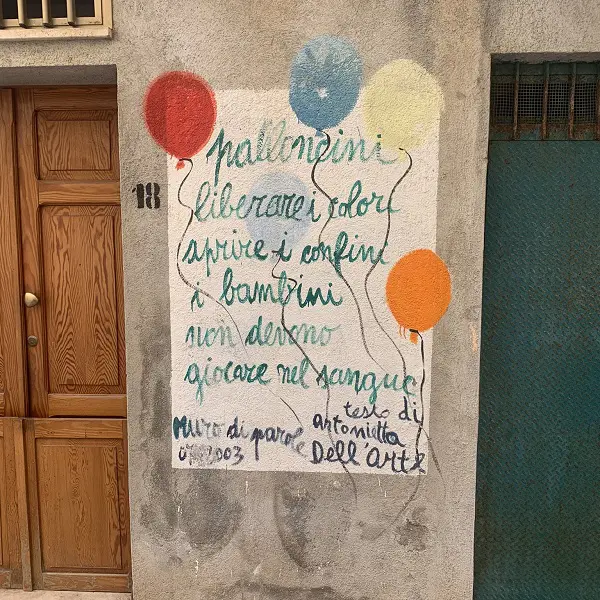 18
palloncini
liberare i colori
aprire i confini
i bambini
non devono
giocare nel sangue
Muro di parole
2003
testo di
Antonietta
Dell'Arte